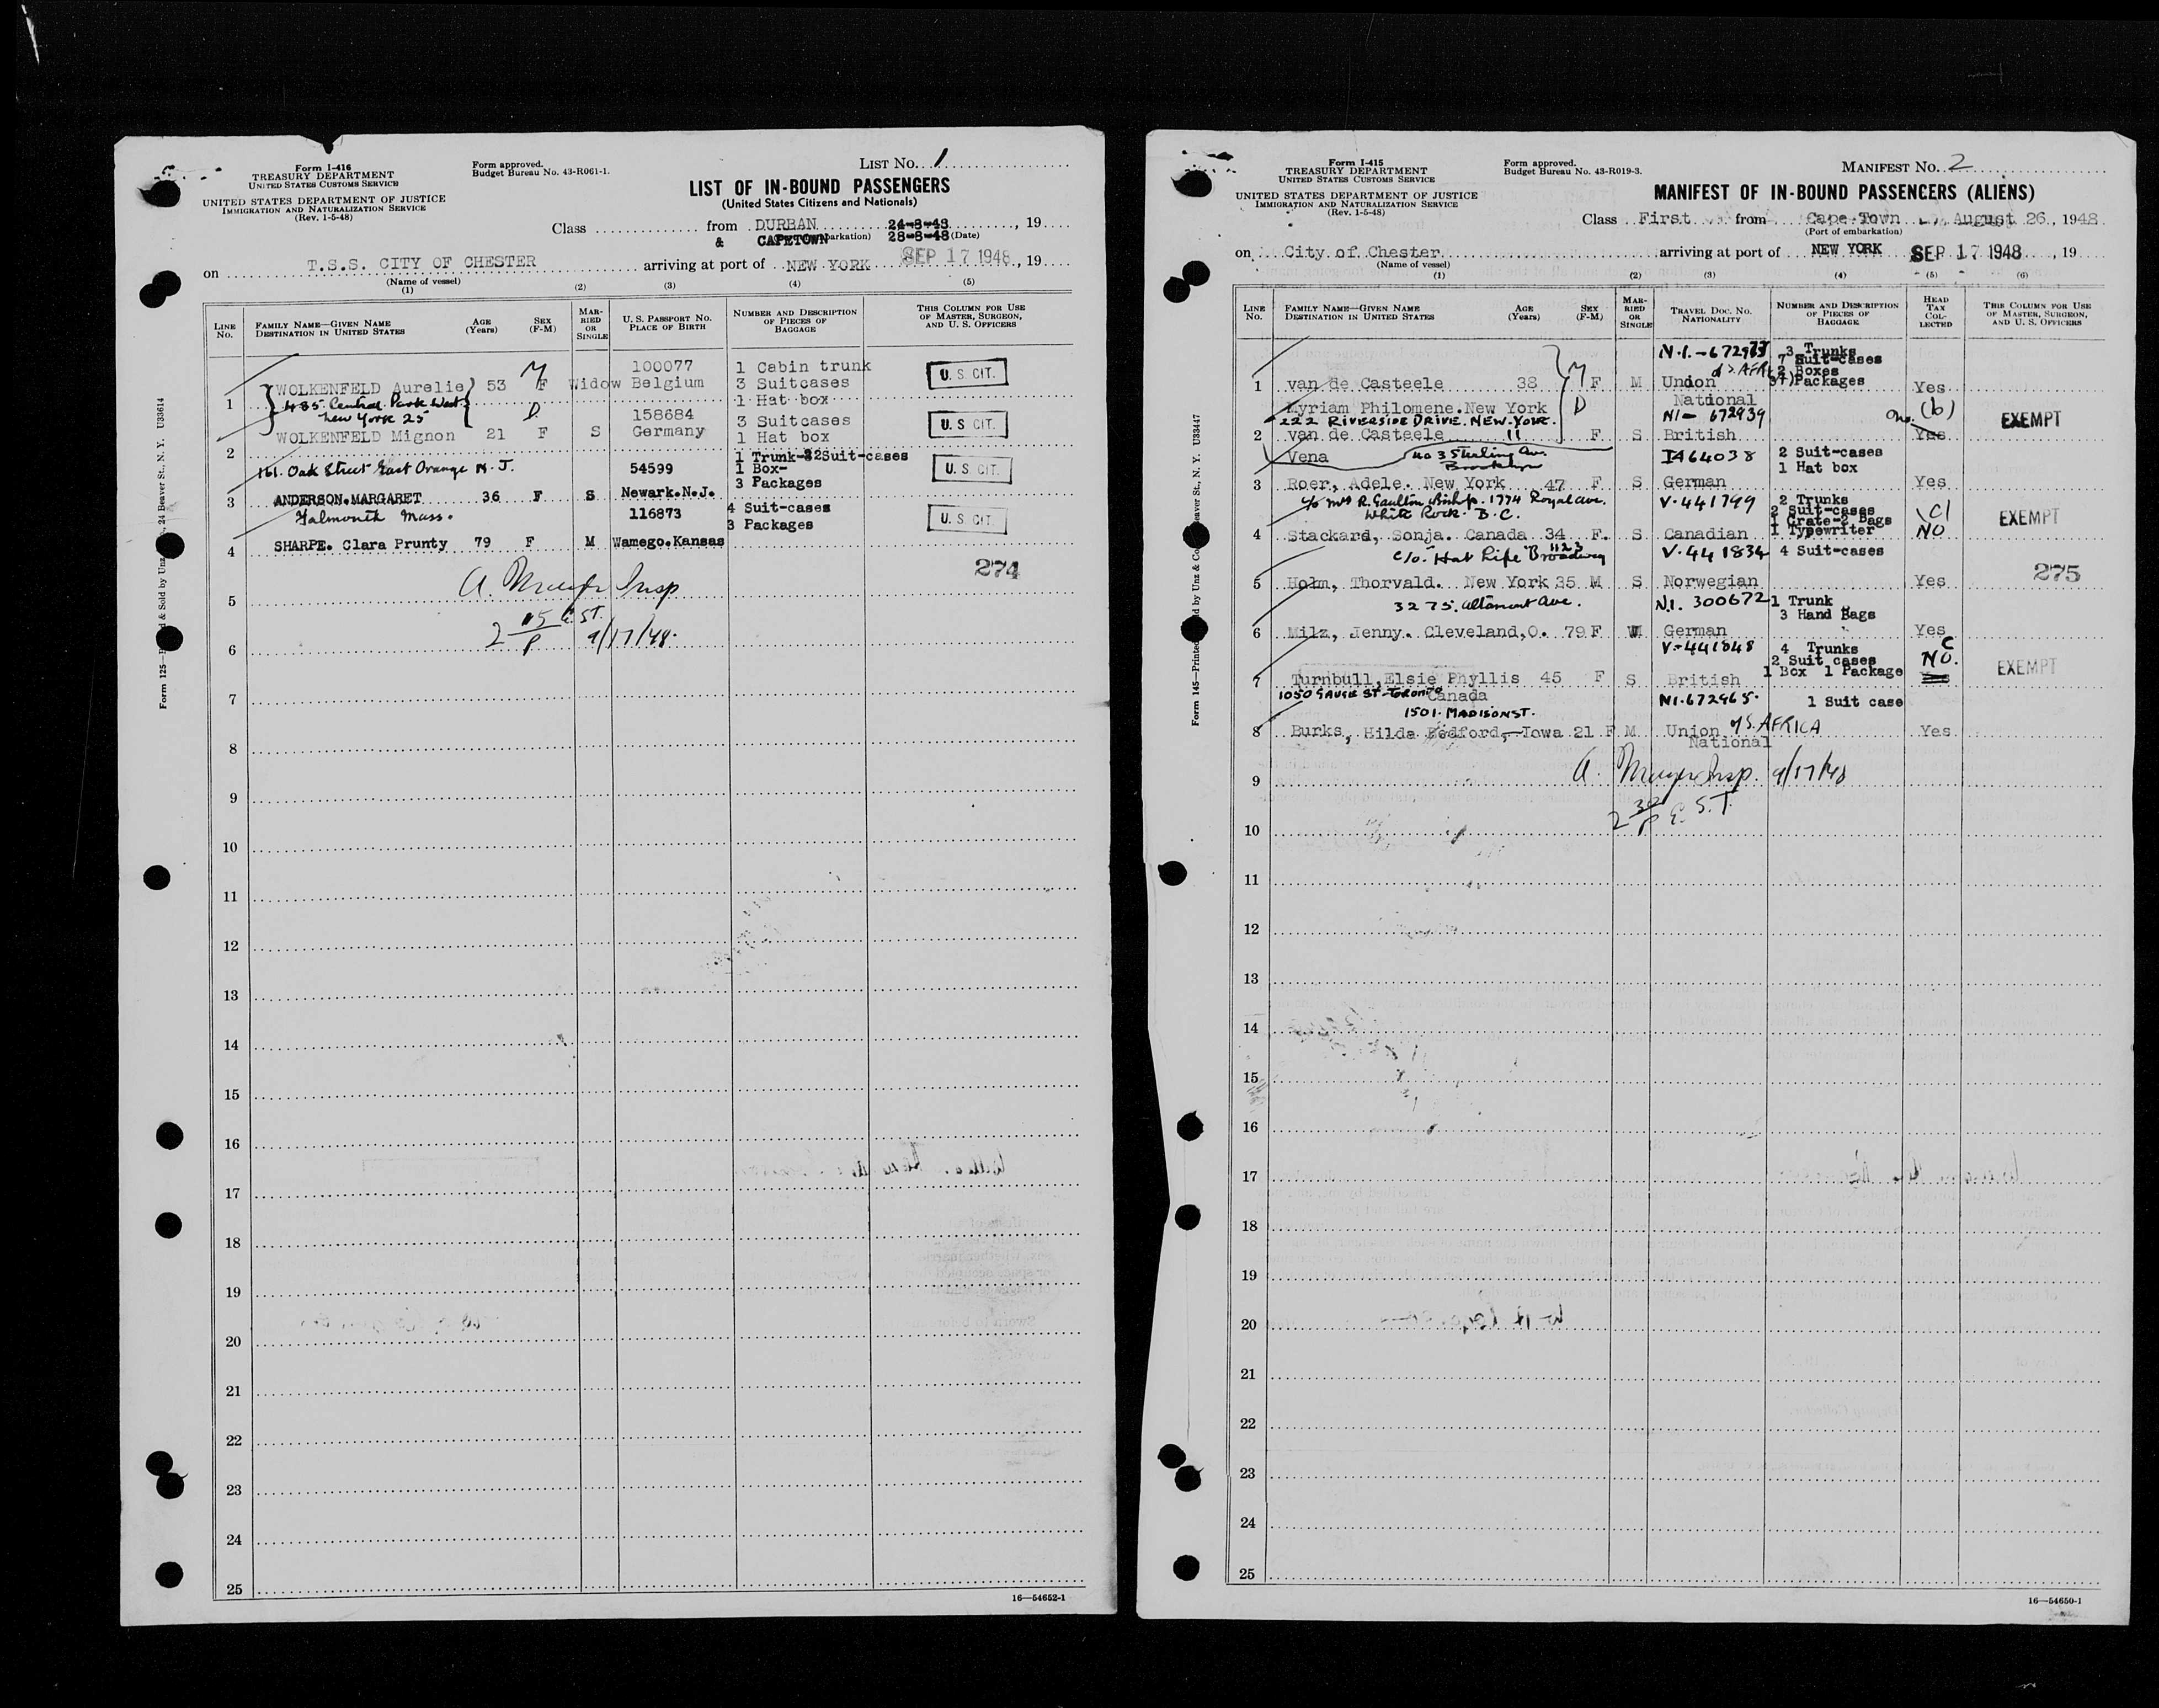 Form I-416
TREASURY DEPARTMENT
UNITED STATES CUSTOMS SERVICE
UNITED STATES DEPARTMENT OF JUSTICE
IMMIGRATION AND NATURALIZATION SERVICE
(Rev. 1-5-48)
Form approved.
Budget Bureau No. 43-R061-1.
LIST NO. 1
LIST OF IN-BOUND PASSENGERS
(United States Citizens and Nationals)
Class from DURBAN 24-8-48, 19
& CAPETOWN 28-8-48 (Date)
on T.S.S. CITY OF CHESTER arriving at port of NEW YORK SEP 17 1948, 19
(Name of vessel)
(1) (2) (3) (4) (5)
LINE NO. FAMILY NAME—GIVEN NAME DESTINATION IN UNITED STATES AGE (Years) SEX (F-M) MARRIED OR SINGLE U. S. PASSPORT NO. PLACE OF BIRTH NUMBER AND DESCRIPTION OF PIECES OF BAGGAGE THIS COLUMN FOR USE OF MASTER, SURGEON, AND U. S. OFFICERS
100077 1 Cabin trunk U. S. CIT.
WOLKENFELD Aurelie 53 F Widow Belgium 3 Suitcases
1 485 Central Park West 1 Hat box
New York 25 158684 3 Suitcases U. S. CIT.
WOLKENFELD Mignon 21 F S Germany 1 Hat box
2
161. Oak Street East Orange N. J. 54599 1 Trunk-32Suit-cases U. S. CIT.
1 Box-
3 Packages
3 ANDERSON.MARGARET 36 F S Newark.N.J.
Falmouth Mass. 116873 4 Suit-cases U. S. CIT.
3 Packages
4 SHARPE. Clara Prunty 79 F M Wamego.Kansas
274
5 A. Insp
2 15/P E.ST. 9/17/48.
6
7
8
9
10
11
12
13
14
15
16
17
18
19
20
21
22
23
24
25
16—54652-1
24 Beaver St., N. Y. U33614
Form I-415
TREASURY DEPARTMENT
UNITED STATES CUSTOMS SERVICE
UNITED STATES DEPARTMENT OF JUSTICE
IMMIGRATION AND NATURALIZATION SERVICE
(Rev. 1-5-48)
Form approved.
Budget Bureau No. 43-R019-3.
MANIFEST NO. 2
MANIFEST OF IN-BOUND PASSENGERS (ALIENS)
Class First from Cape Town August 26, 1948
(Port of embarkation)
on City of Chester arriving at port of NEW YORK SEP 17 1948, 19
(Name of vessel)
(1) (2) (3) (4) (5) (6)
LINE NO. FAMILY NAME—GIVEN NAME DESTINATION IN UNITED STATES AGE (Years) SEX (F-M) MARRIED OR SINGLE TRAVEL DOC. NO. NATIONALITY NUMBER AND DESCRIPTION OF PIECES OF BAGGAGE HEAD TAX COLLECTED THIS COLUMN FOR USE OF MASTER, SURGEON, AND U. S. OFFICERS
3 Trunks
7 Suit-cases
2 Boxes
1 van de Casteele 38 F M Union Packages Yes
Myriam Philomene.New York National
222 RIVERSIDE DRIVE. NEW-YORK. NI- 672939 No. (b) EXEMPT
2 van de Casteele 11 F S British Yes
Vena 40 3 Sterling Av. Brooklyn I464038 2 Suit-cases
1 Hat box
3 Roer, Adele. New York 47 F S German Yes
1774 Royal Ave. V-441799 2 Trunks
White Rock. B.C. 2 Suit-cases
1 Crate-2 Bags
4 Stackard, Sonja. Canada 34 F. S Canadian 1 Typewriter NO EXEMPT
1123 Broadway V-441834 4 Suit-cases
5 Holm, Thorvald. New York 35 M S Norwegian Yes
275
3275. Altamont Ave. N.I. 300672 1 Trunk
3 Hand Bags
6 Milz, Jenny. Cleveland,O. 79 F W German Yes
V-441848 4 Trunks
2 Suit cases NO.
7 Turnbull,Elsie Phyllis 45 F S British 1 Box 1 Package EXEMPT
Canada NI.672965. 1 Suit case
1501. MADISON ST.
8 Burks, Hilda Bedford, Iowa 21 F M Union of S. AFRICA Yes
National
9 A. Insp. 9/17/48
2 30/P E. S.T.
10
11
12
13
14
15
16
17
18
19
20
21
22
23
24
25
16—54650-1
U33447